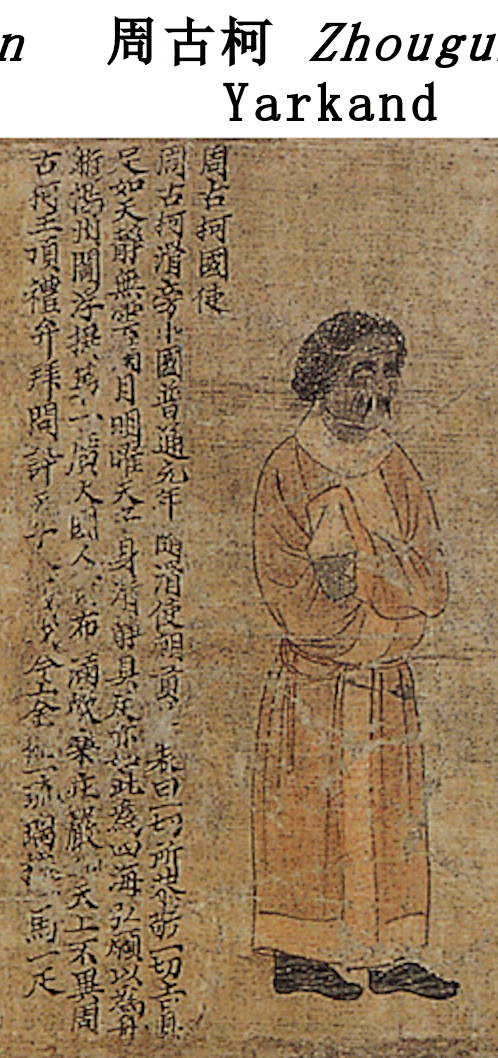 周古柯
Yarkand
周古柯國使
周古柯滑旁小國普通元年隨滑使朝貢表曰一切所恭敬一切吉具
足如天靜無雲滿月明曜天子身清靜具足亦如此為四海弘願以為舟
航揚州閻浮提第一廣大國人民布滿歡樂莊嚴如天上不異周
古柯王頂禮弁拜問訊天子今上金一琉璃椀一馬一疋